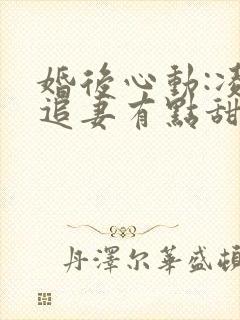 婚後心動:凌
追妻有點甜
丹澤尔華盛頓